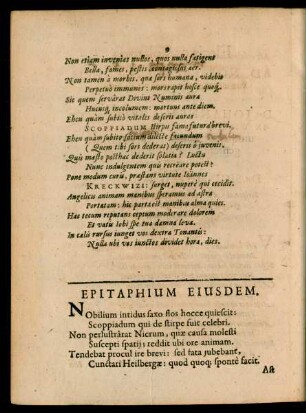 Non etiam inventas nullos, quos nulla fatigent
Bella, fames, pestis contagiosus aër.
Non tamen à morbis, quæ sors humana, videbis
Perpetuò immunes: mors rapit hosce quoq;.
Sic quem servârat Divini Numinis aura
Hucusq; incolumem: mortuus ante diem.
Eheu quàm subitò vitales deseris auras
SCOPPIADUM stirps fama futura brevi.
Eheu quàm subitò solium
(Quem tibi sors dederat) deseris ô juvenis.
Quis mæsto posthac dederit solatia? Luctu
Nunc indulgentem quis recreare potest?
Pone modum curis, præstans virtute Ioannes
KRECKWIZI: surget, nuperè qui cecidit.
Angelicis animam manibus speramus ad astra
Portatam: hic parta est manibus alma quies.
Hæc tecum reputans ceptum moderare dolorem
Et vatis Iobi spe tua damna leva.
In cœlis rursus iunget vos dextra Tonantis:
Nulla ubi vos iunctos dividet hora, dies.
EPITAPHIUM EIUSDEM.
NObilium intidus saxo flos hocce quiescit:
Scoppiadum qui de stirpe fuit celebri.
Non perlustrârat Nicrum, quæ causa molesti
Suscepti spatii; reddit ubi ore animam.
Tendebat procul ire brevi: sed fata jubebant,
Cunctari Heilbergæ: quod quoq; sponte facit.
Ast